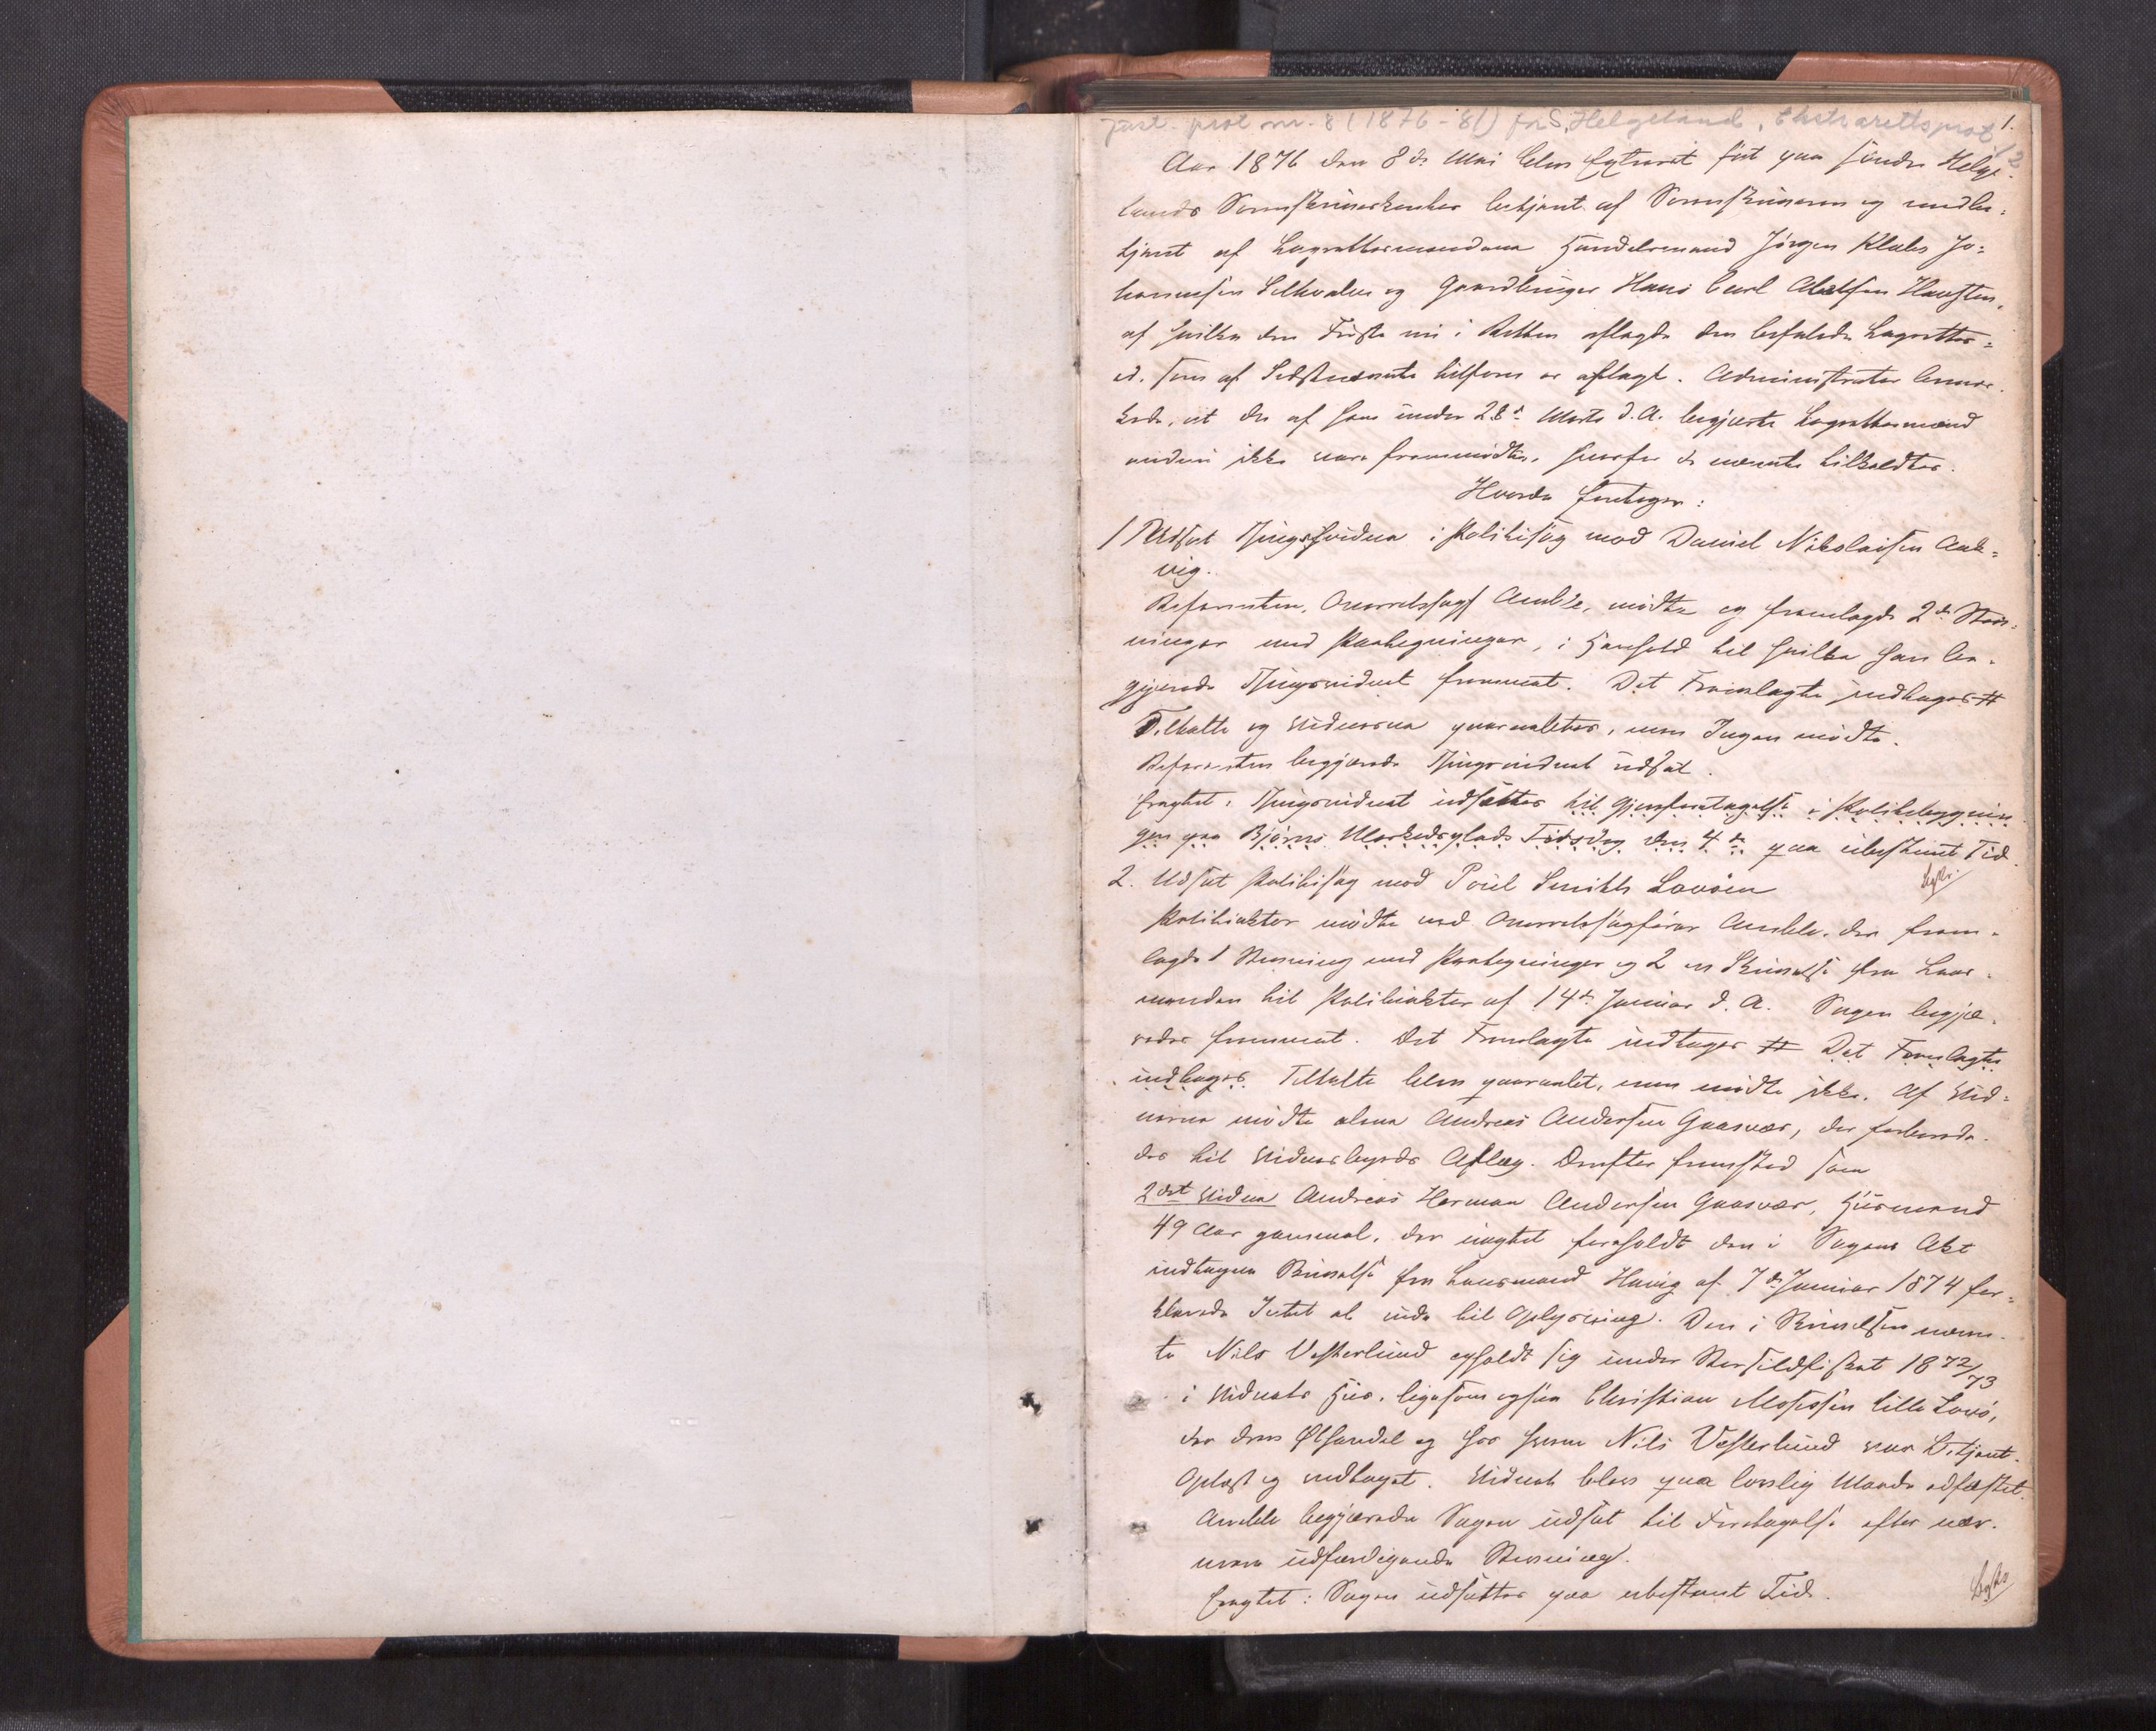 just. prot nr. 8 (1876-81) for S. Helgeland, ekstrarettsprot 1.
Aar 1876 den 8de Mai blev Extraret sat paa søndre Helge-
lands Sorenskriverkontor betjent af Sorenskriveren og medbe-
tjent af Lagrettesmændene Handelsmand Jørgen Klæbo Jo-
hannesen Silkvalen og Gaardbruger Hans Carl Adolfsen Haugten,
af hvilke den Første nu i Retten aflagde den befalede Lagrettes-
ed, som af Sidstnævnte tilforn er aflagt. Administrator bemær-
kede, at de af ham under 28de Marts d. A. begjærte Lagrettesmænd
endnu ikke vare fremmødte, hvorfor de nævnte tilkaldtes.
Hvorda foretoges:
1 Udsat Thingsvidne i Politisag mod Daniel Nikolaisen Aak-
vig.
Referenten, Overretssagf Amble, mødte og fremlagde 2de Stæv-
ninger med Paategninger, i Henhold til hvilke han be-
gjærede Thingsvidnet fremmet. Det Fremlagte indtages #
Tiltalte og Vidnerne paaraabtes, men Ingen mødte.
Referenten begjærede Thingsvidnet udsat.
Eragtet: Thingsvidnet udsættes til Gjenforetagelse i Politibygnin
gen paa Bjørns Markedsplads Tirsdag den 4de paa ubestemt Tid.
2. Udsat Politisag mod Poul Smith Lovøen
Politiaktor mødte ved Overretssagfører Amble, der frem-
lagde 1 Stævning med Paategninger og 2 en Skrivelse fra Lens-
manden til Politiaktor af 14de Januar d. A. Sagen begjæ-
redes fremmet. Det Fremlagte indtages # Det Fremlagte
indtages. Tiltalte blev paaraabt, men mødte ikke. Af Vid-
nerne mødte alene Andreas Andersen Gaasvær, der forberede-
des til Vidnesbyrds Aflæg. Derefter fremstod som
2det Vidne Andreas Herman Andersen Gaasvær, Husmand
49 Aar gammel, der uagtet foreholdt den i Sagens Akt
indtagne Skrivelse fra Lensmand Havig af 7de Januar 1874 for-
klarede Intet at vide til Oplysning. Den i Skrivelsen nævn-
te Nils Vesterlund opholdt sig under Storsildfisket 1872/73
i Vidnets Hus, ligesom ogsaa Christian Mosesen lille Lovø,
der drev Ølhandel og hos hvem Nils Vesterlund var betjent.
Oplæst og vedtaget. Vidnet blev paa lovlig Maade edfæstet.
Amble begjærede Sagen udsat til Foretagelse efter nær-
mere udfærdigende Stævning.
Eragtet: Sagen udsættes paa ubestemt Tid.